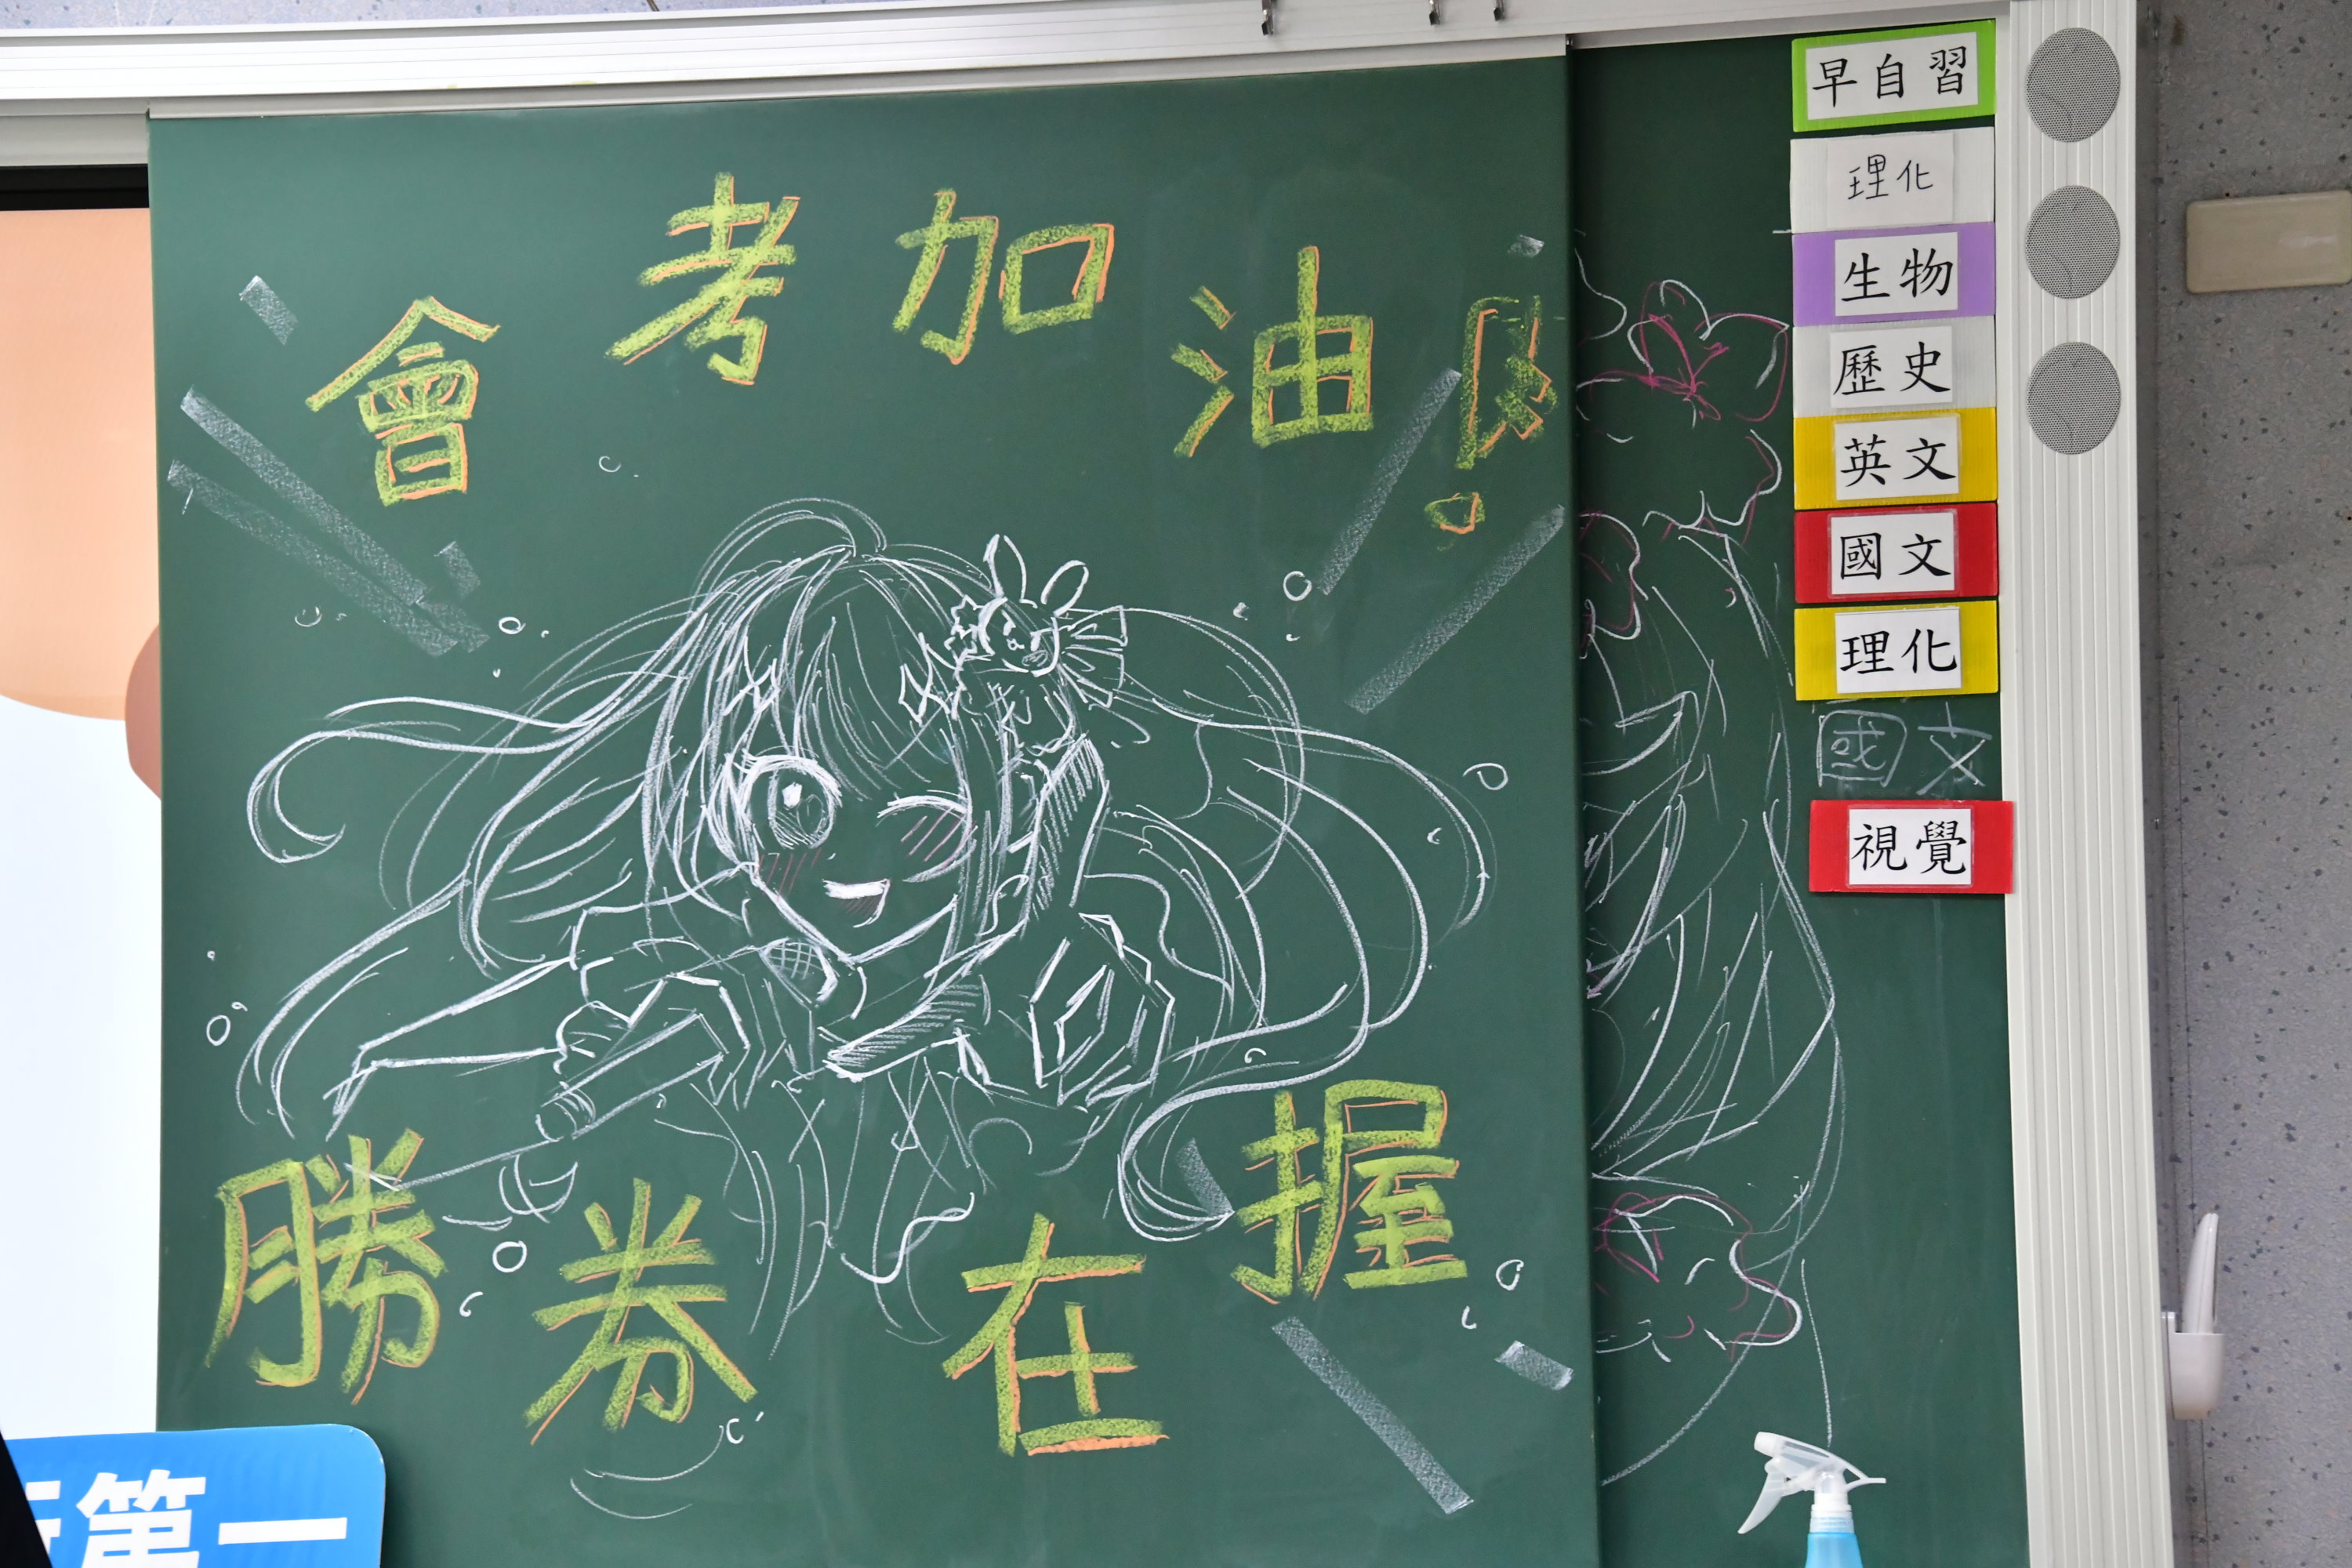 會考加油!
勝券在握
早自習
理化
生物
歷史
英文
國文
理化
國文
視覺
第一